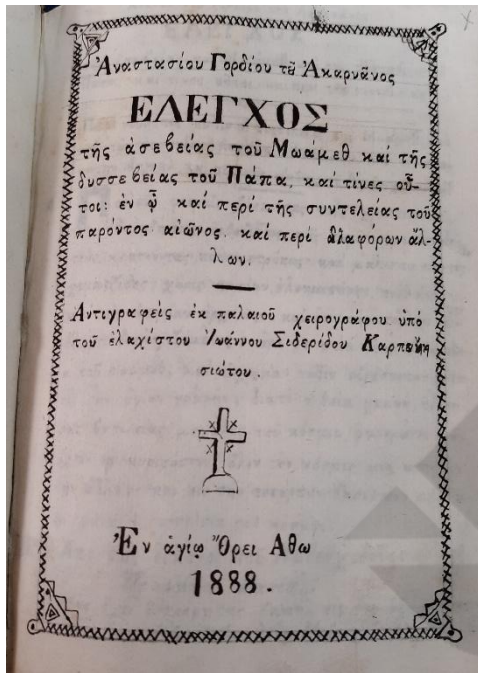 Ἀναστασίου Γορδίου τȣ͂ Ἀκαρνᾶνος
ΕΛΕΓΧΟΣ
τῆς ἀσεβείας τοῦ Μωάμεθ καί τῆς
δυσσεβείας τοῦ Πάπα, καί τίνες οὗ-
τοι: ἐν ᾧ καί περί τῆς συντελείας τοῦ
παρόντος αἰῶνος. καί περί διαφόρων ἄλ-
λων.
Αντιγραφεὶς ἐκ παλαιοῦ χειρογράφου ὑπό
τοῦ ἐλαχίστου Ἰωάννου Σιδερίδου Καρπενη
σιώτου.
Ἐν ἁγίῳ Ὄρει Αθω
1888.